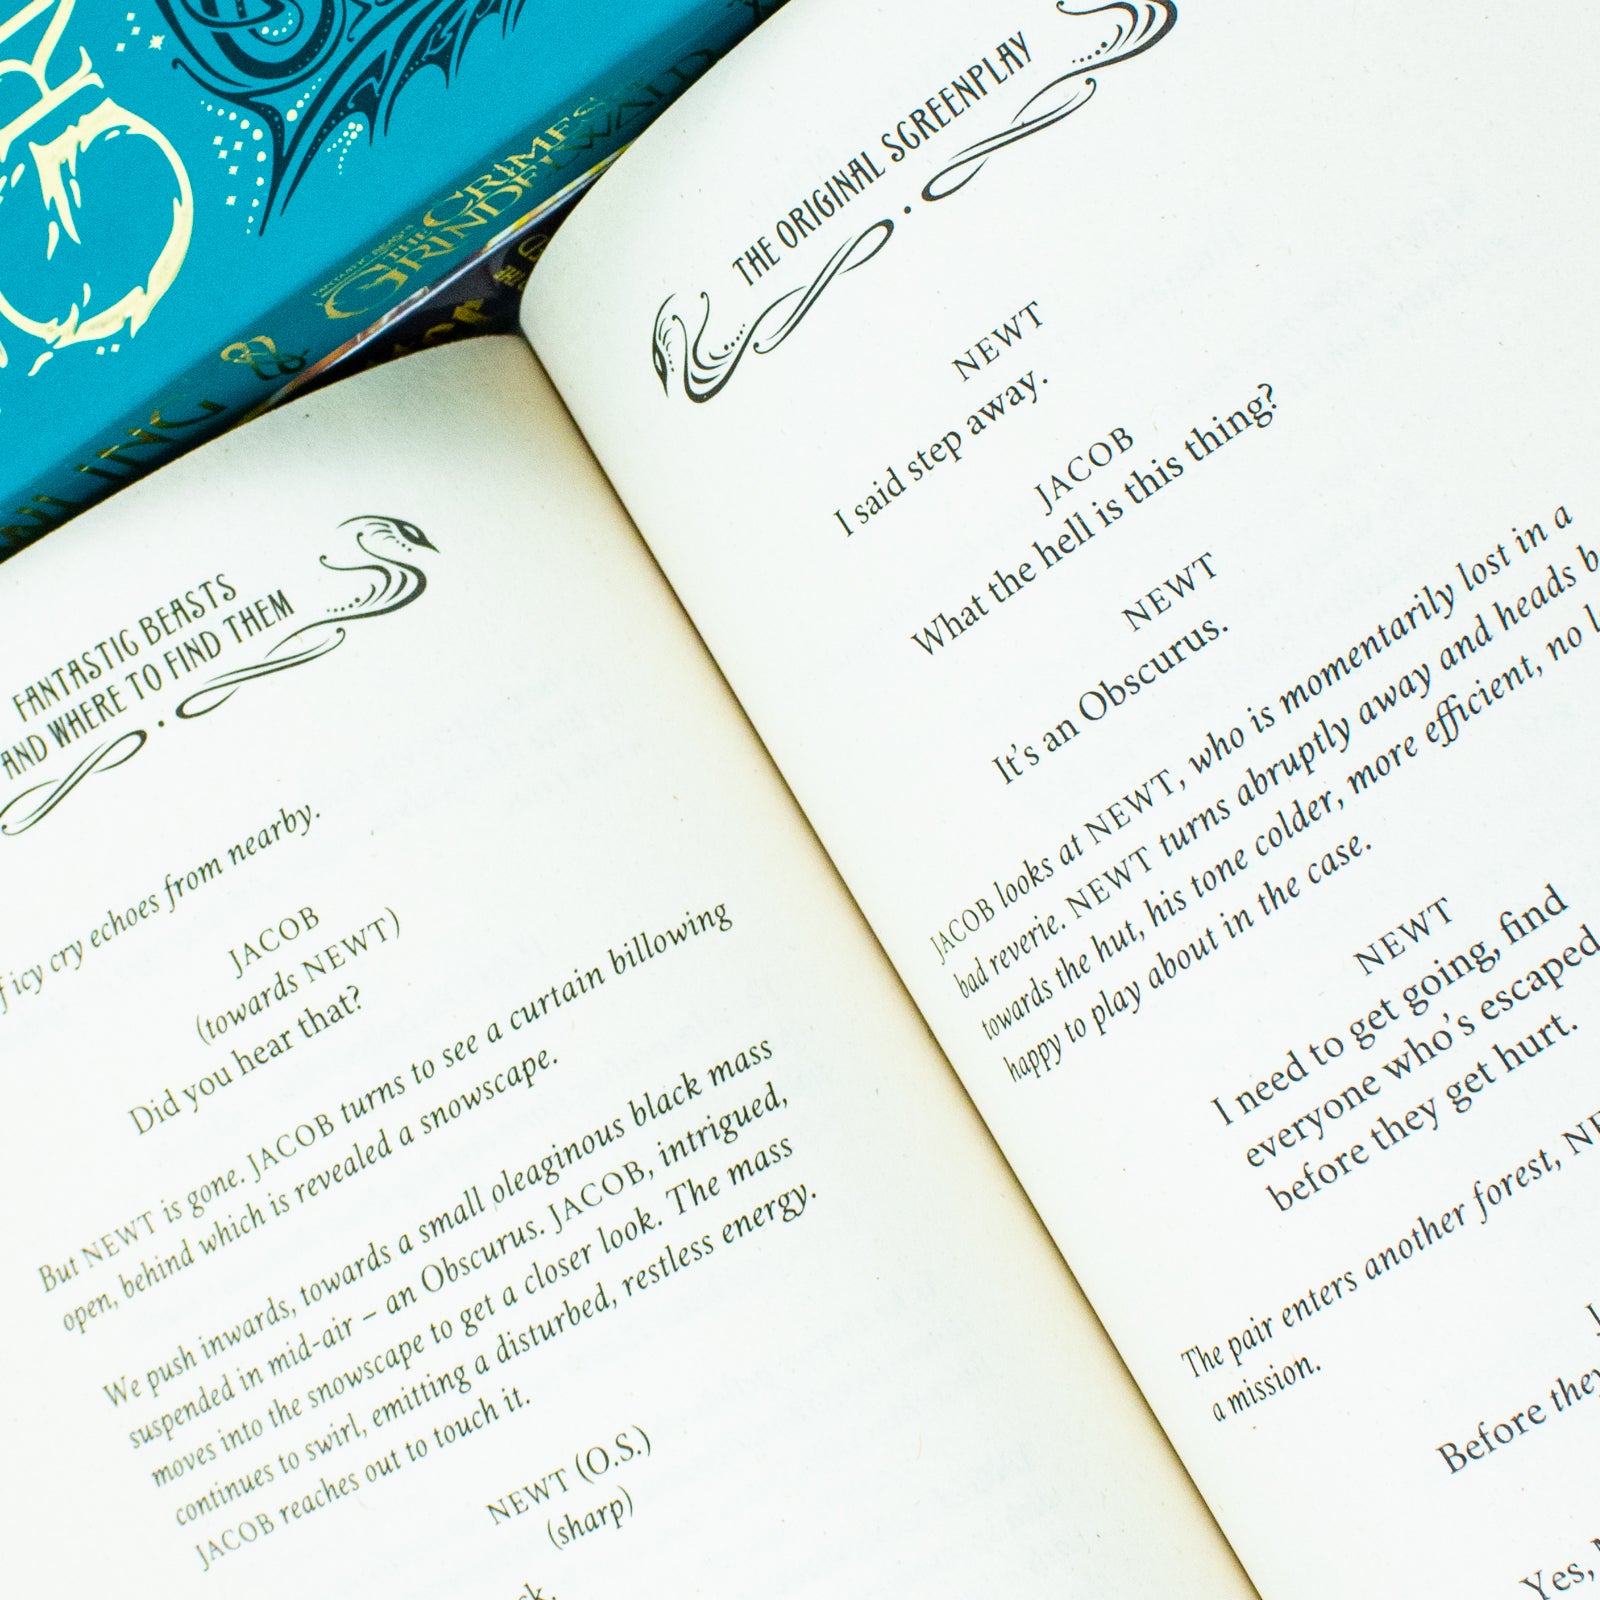 FANTASTIC BEASTS
THE CRIMES OF
GRINDELWALD
FANTASTIC BEASTS
AND WHERE TO FIND THEM
icy cry echoes from nearby.
JACOB
(towards NEWT)
Did you hear that?
But NEWT is gone. JACOB turns to see a curtain billowing
open, behind which is revealed a snowscape.
We push inwards, towards a small oleaginous black mass
suspended in mid-air – an Obscurus. JACOB, intrigued,
moves into the snowscape to get a closer look. The mass
continues to swirl, emitting a disturbed, restless energy.
JACOB reaches out to touch it.
NEWT (O.S.)
(sharp)
THE ORIGINAL SCREENPLAY
NEWT
I said step away.
JACOB
What the hell is this thing?
NEWT
It's an Obscurus.
JACOB looks at NEWT, who is momentarily lost in a
bad reverie. NEWT turns abruptly away and heads
towards the hut, his tone colder, more efficient, no
happy to play about in the case.
NEWT
I need to get going, find
everyone who's escaped
before they get hurt.
The pair enters another forest,
a mission.
Before they
Yes,